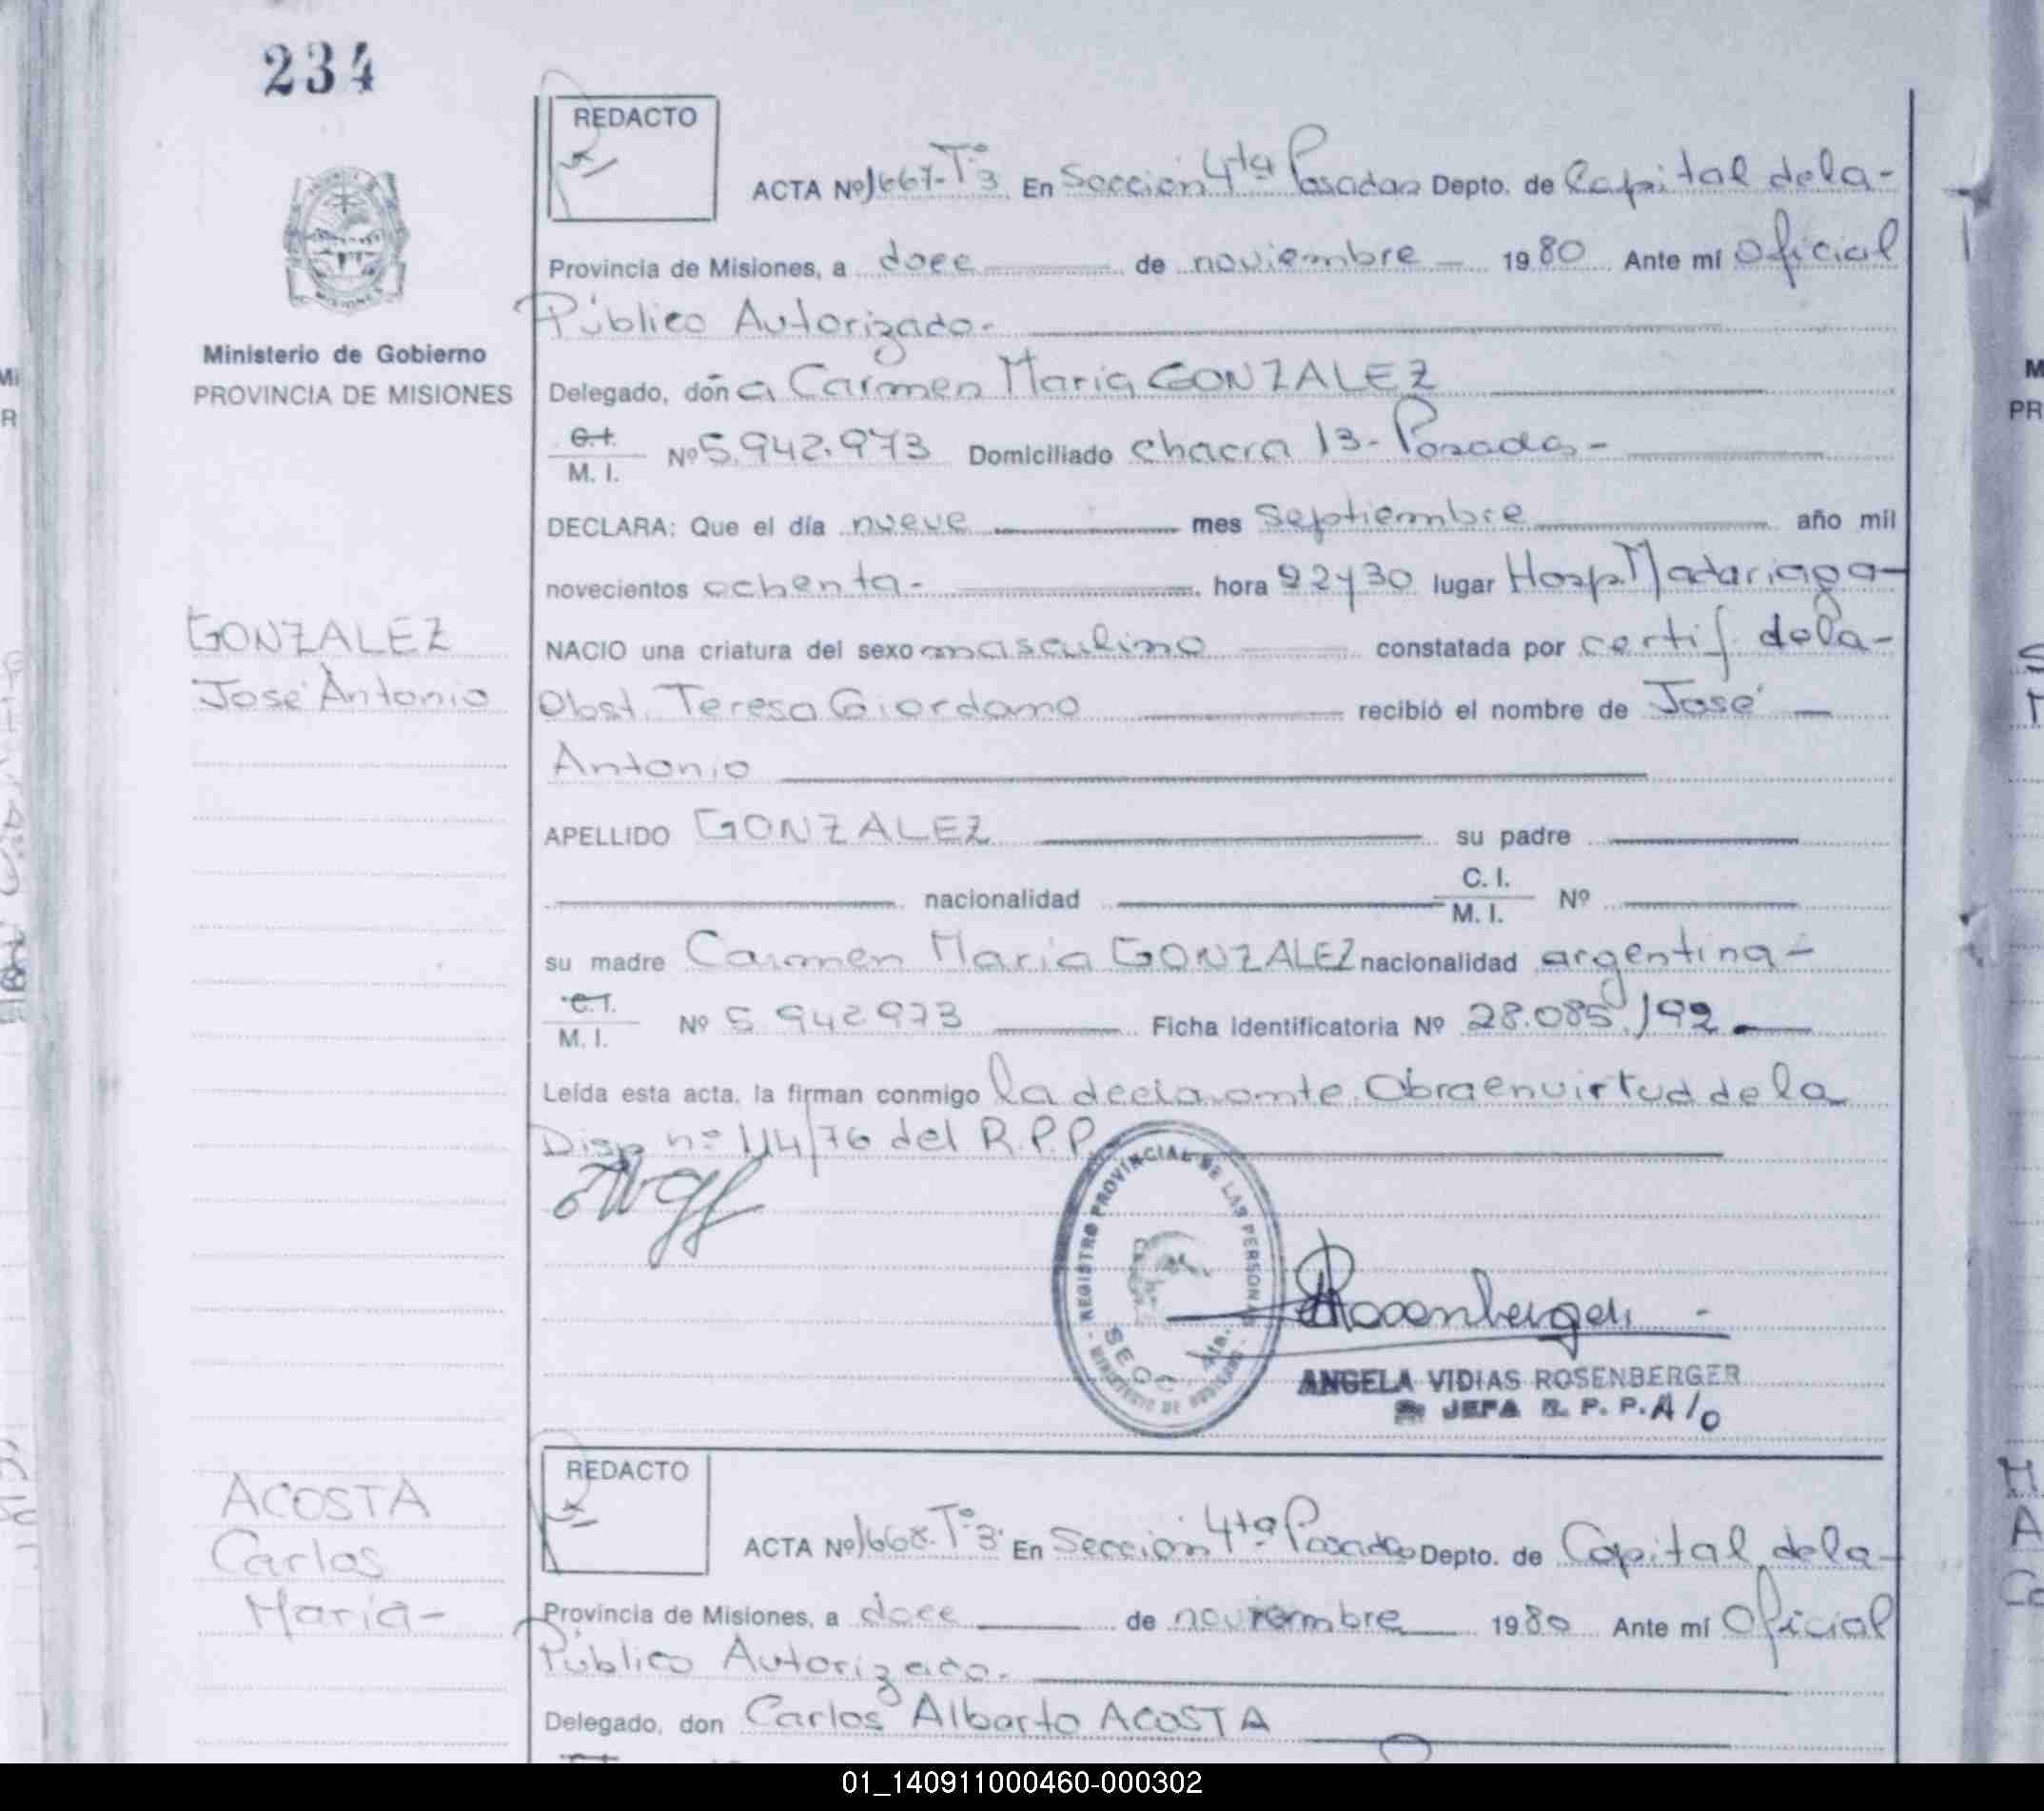 234
REDACTO
ACTA Nº 1667-Tº3 En Sección 4ta Posadas Depto. de Capital de la-
Provincia de Misiones, a doce de noviembre - 1980 Ante mí Oficial
Público Autorizado.-
Ministerio de Gobierno
PROVINCIA DE MISIONES
Delegado, doña Carmen Maria GONZALEZ
C.I.
M. I. Nº 5.942.973 Domiciliado chacra 13- Posadas-
DECLARA: Que el día nueve mes septiembre año mil
novecientos ochenta- hora 22y30 lugar Hosp. Madariaga-
GONZALEZ
José Antonio
NACIO una criatura del sexo masculino constatada por certif de la-
Obst. Teresa Giordano recibió el nombre de José -
Antonio
APELLIDO GONZALEZ su padre
nacionalidad C. I.
M. I. Nº
su madre Carmen Maria GONZALEZ nacionalidad argentina-
C.I.
M. I. Nº 5 942 973 Ficha Identificatoria Nº 28.085/92
Leída esta acta, la firman conmigo la declarante. Obra en virtud de la
Disp nº 114/76 del R.P.P.
REGISTRO PROVINCIAL DE LAS PERSONAS
SECC 4ta.
MINISTERIO DE GOBIERNO
Rosenberger
ANGELA VIDIAS ROSENBERGER
JEFA R. P. P. A/O
ACOSTA
Carlos
Maria-
REDACTO
ACTA Nº 1668-Tº3 En Sección 4ta Posadas Depto. de Capital de la-
Provincia de Misiones, a doce de noviembre 1980 Ante mí Oficial
Público Autorizado.
Delegado, don Carlos Alberto ACOSTA
01_140911000460-000302